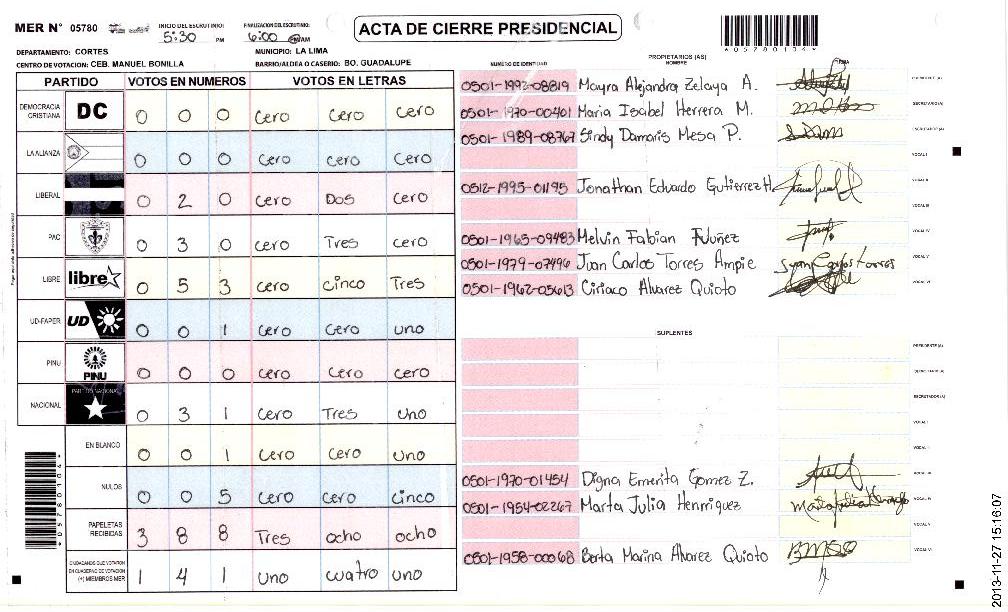 MER N° 05780 INICIO DEL ESCRUTINIO: 5:30 PM FINALIZACION DEL ESCRUTINIO: 6:00 PM/AM
ACTA DE CIERRE PRESIDENCIAL
*05780104*
DEPARTAMENTO: CORTES MUNICIPIO: LA LIMA
CENTRO DE VOTACION: CEB. MANUEL BONILLA BARRIO/ALDEA O CASERIO: BO. GUADALUPE
PARTIDO VOTOS EN NUMEROS VOTOS EN LETRAS
DEMOCRACIA CRISTIANA DC 0 0 0 Cero Cero Cero
LA ALIANZA 0 0 0 Cero Cero Cero
LIBERAL 0 2 0 Cero Dos Cero
PAC 0 3 0 Cero Tres Cero
LIBRE libre 0 5 3 Cero Cinco Tres
UD-FAPER UD 0 0 1 Cero Cero uno
PINU PINU 0 0 0 Cero Cero Cero
NACIONAL PARTIDO NACIONAL 0 3 1 Cero Tres uno
EN BLANCO 0 0 1 Cero Cero uno
NULOS 0 0 5 Cero Cero Cinco
PAPELETAS RECIBIDAS 3 8 8 Tres ocho ocho
CIUDADANOS QUE VOTARON EN CUADERNO DE VOTACION (+) MIEMBROS MER 1 4 1 uno cuatro uno
*05780104*
PROPIETARIOS (AS)
NUMERO DE IDENTIDAD NOMBRE FIRMA
0501-1992-08819 Mayra Alejandra Zelaya A. PRESIDENTE (A)
0501-1970-00401 Maria Isabel Herrera M. SECRETARIO (A)
0501-1989-08767 Sindy Damaris Mesa P. ESCRUTADOR (A)
VOCAL I
0512-1995-01195 Jonathan Eduardo Gutierrez H. VOCAL II
VOCAL III
0501-1965-09483 Melvin Fabian Nuñez VOCAL IV
0501-1979-07496 Juan Carlos Torres Ampie VOCAL V
0501-1962-05613 Ciriaco Alvarez Quioto VOCAL VI
SUPLENTES
PRESIDENTE (A)
SECRETARIO (A)
ESCRUTADOR (A)
VOCAL I
VOCAL II
0501-1970-01454 Digna Emerita Gomez Z. VOCAL III
0501-1954-02267 Marta Julia Henriquez VOCAL IV
VOCAL V
0501-1958-00068 Berta Marina Alvarez Quioto VOCAL VI
2013-11-27 15:16:07